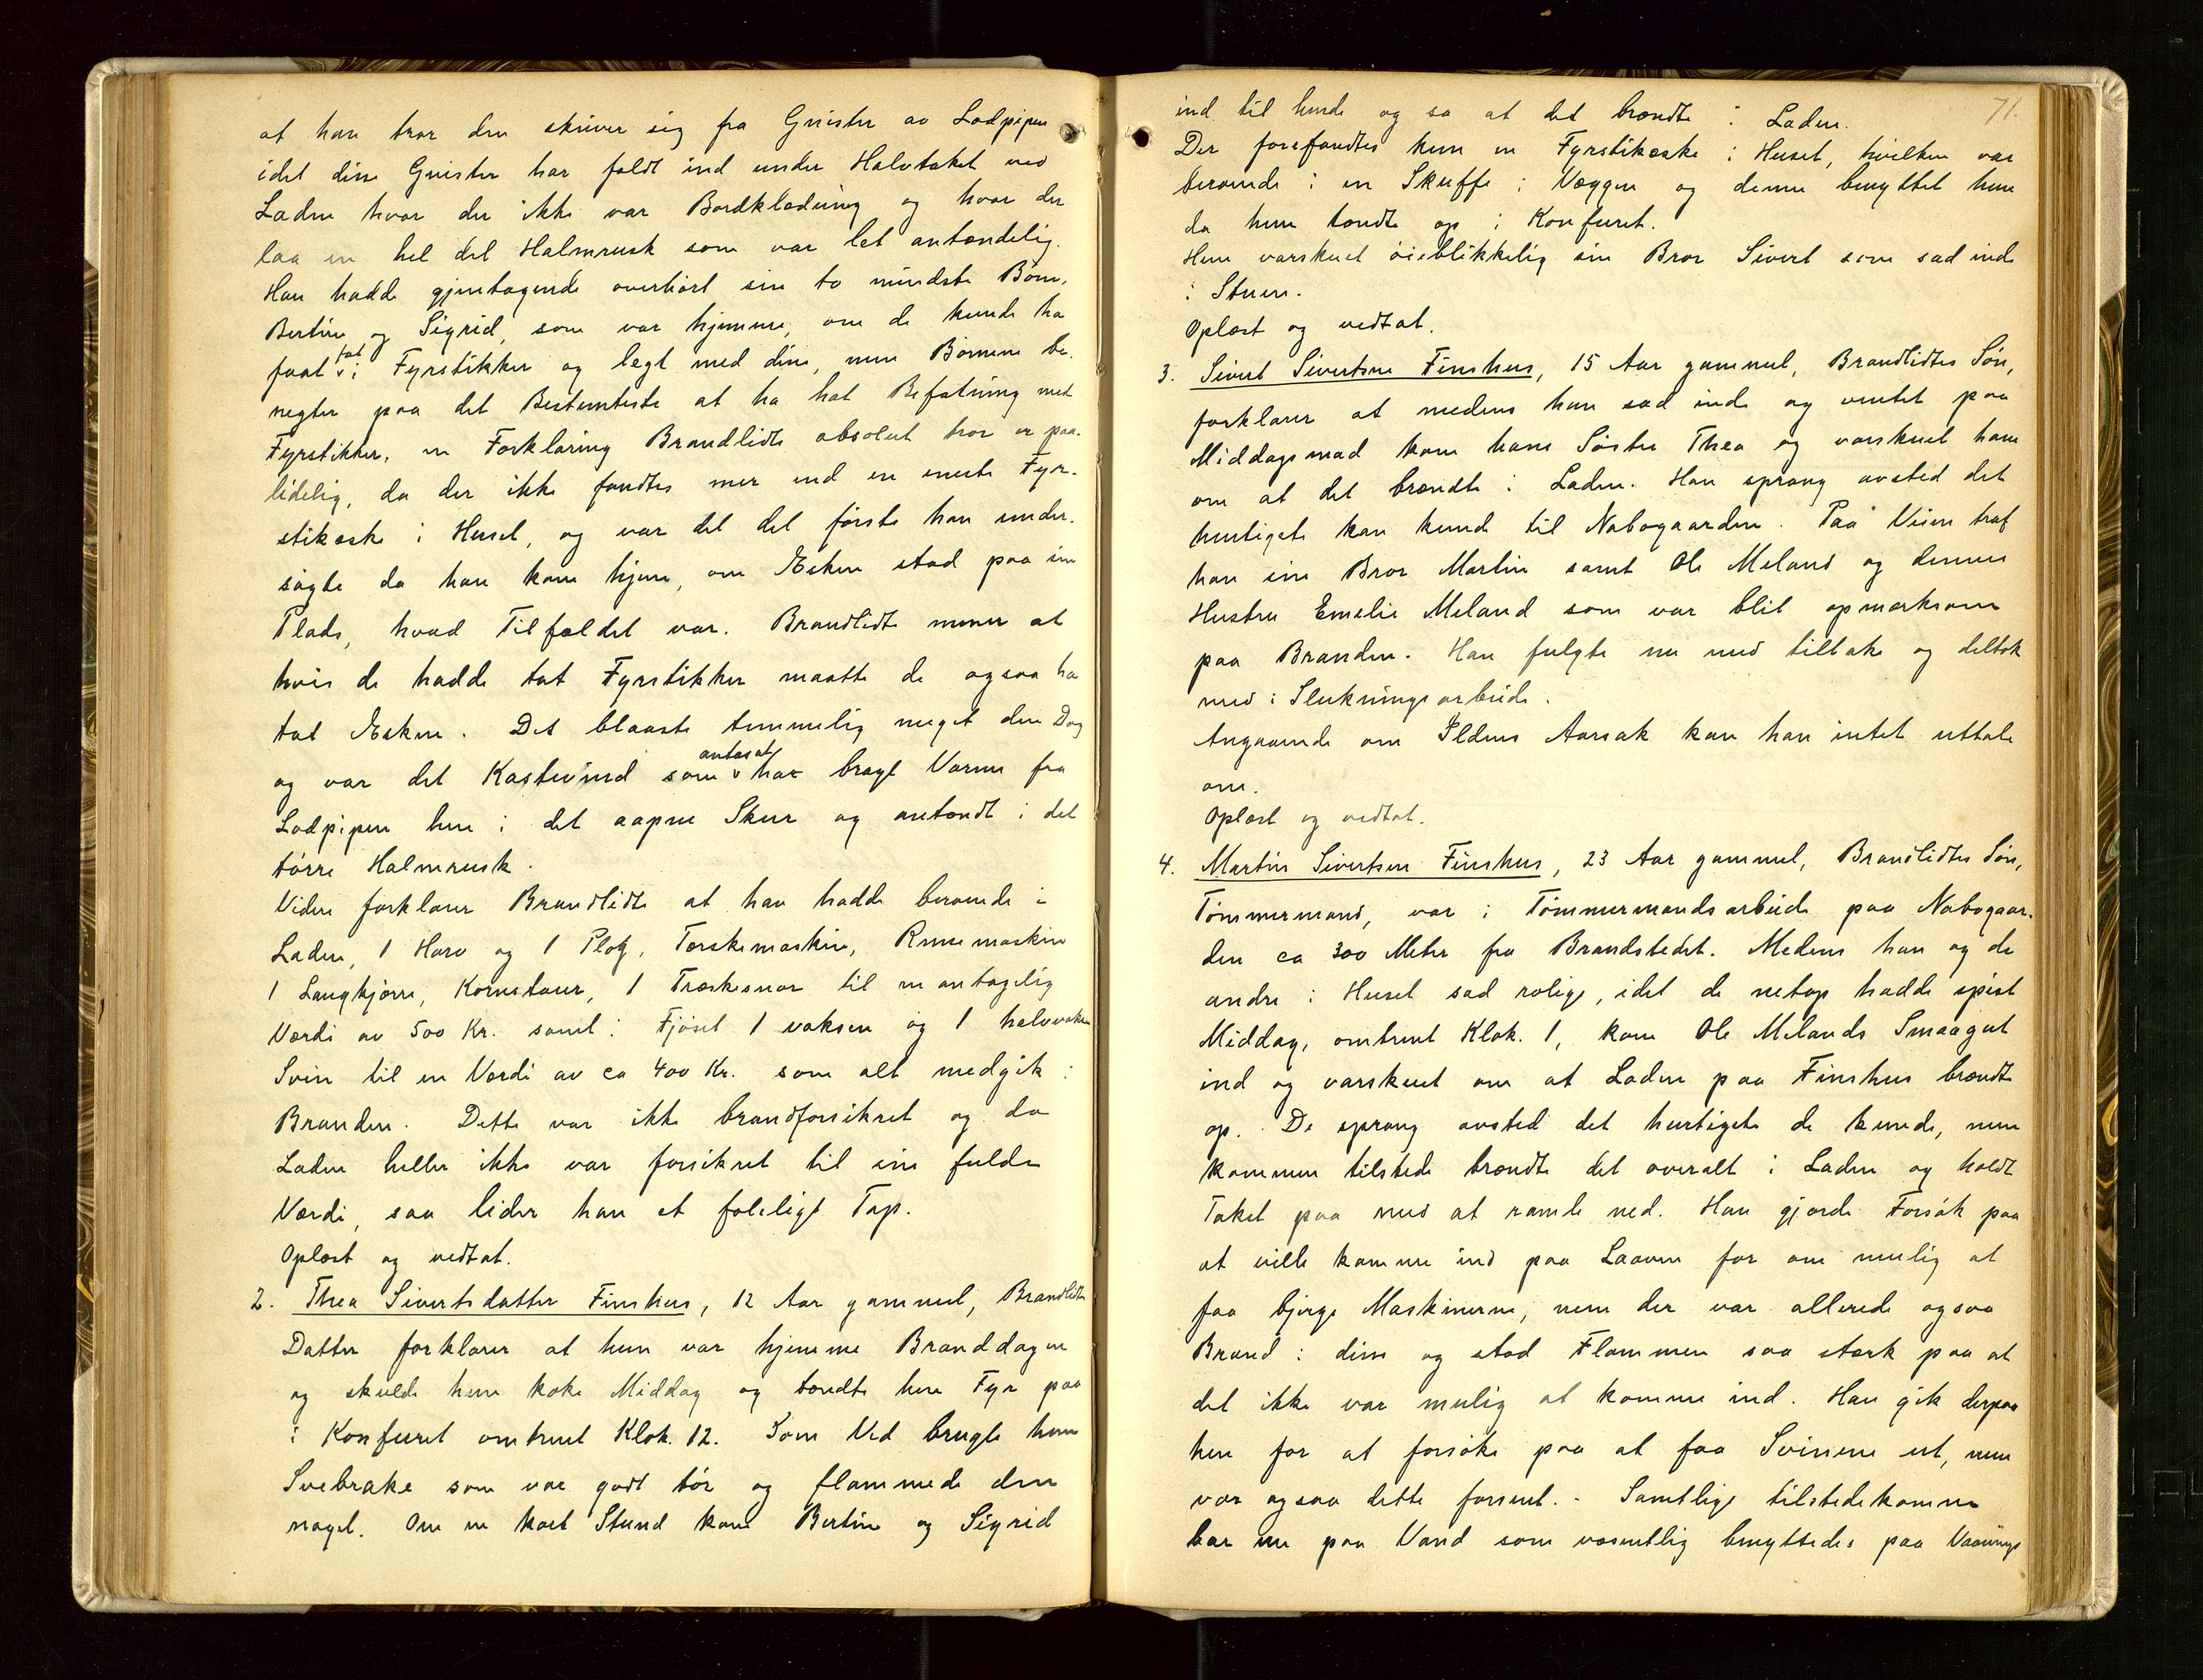 at han tror den skriver sig fra Gnister av Lodpipen
idet disse Gnister har faldt ind under Halvtaket ved
Laden hvor der ikke var Bordklædning og hvor der
laa en hel del Halmrusk som var let antændelig.
Han hadde gjentagende overhört sine to mindste Börn,
Bertine og Sigrid, som var hjemme, om de kunde ha
faat fat i Fyrstikker og lægt med disse, men Börnene be-
negter paa det Bestemteste at ha hat Befatning med
Fyrstikker, en Forklaring Brandlidte absolut tror er paa-
lidelig, da der ikke fandtes mer end en eneste Fyr-
stikæske i Huset, og var det det förste han under-
sögte da han kom hjem, om Æsken stod paa sin
Plads, hvad Tilfældet var. Brandlidte mener at
hvis de hadde tat Fyrstikker maatte de ogsaa ha
tat Æsken. Det blaaste temmelig meget den Dag
og var det Kastevind som antagel har bragt Varme fra
Lodpipen hen i det aapne Skur og antændt i det
törre Halmrusk.
Videre forklarer Brandlidte at han hadde beroende i
Laden, 1 Harv og 1 Plog, Tærskemaskine, Rensemaskine
1 Langkjærre, Kornstaur, 1 Træskesnor til en antagelig
Værdi av 500 Kr. samt i Fjöset 1 voksen og 1 halvvoksen
Svin til en Værdi av ca 400 Kr. som alt medgik i
Branden. Dette var ikke brandforsikret og da
Laden heller ikke var forsikret til sin fulde
Værdi, saa lider han et föleligt Tap.
Oplæst og vedtat.
2. Thea Sivertsdatter Finshus, 12 Aar gammel, Brandlidtes
Datter forklarer at hun var hjemme Branddagen
og skulde hun koke Middag og tændte hun Fyr paa
i Komfuret omtrent Klok. 12. Som Ved brugte hun
Svebrake som var godt tör og flammede den
noget. Om en kort Stund kom Bertine og Sigrid
71.
ind til hende og sa at det brændte i Laden.
Der forefandtes kun en Fyrstikæske i Huset, hvilken var
beroende i en Skuffe i Væggen og denne benyttet hun
da hun tændte op i Komfuret.
Hun varskuet öieblikkelig sin Bror Sivert som sad inde
i Stuen.
Oplæst og vedtat.
3. Sivert Sivertsen Finshus, 15 Aar gammel, Brandlidtes Sön,
forklarer at medens han sad inde og ventet paa
Middagsmad kom hans Söster Thea og varskuet ham
om at det brændte i Laden. Han sprang avsted det
hurtigste han kunde til Nabogaarden. Paa Veien traf
han sin Bror Martin samt Ole Meland og dennes
Hustru Emelie Meland som var blit opmerksom
paa Branden. Han fulgte nu med tilbake og deltok
med i Slukningsarbeide.
Angaaende om Ildens Aarsak kan han intet uttale
om.
Oplæst og vedtat.
4. Martin Sivertsen Finshus, 23 Aar gammel, Brandlidtes Sön,
Tömmermand, var i Tömmermandsarbeide paa Nabogaar-
den ca 300 Meter fra Brandstedet. Medens han og de
andre i Huset sad rolige, idet de netop hadde spist
Middag, omtrent Klok. 1, kom Ole Melands Smaagut
ind og varskuet om at Laden paa Finshus brændte
op. De sprang avsted det hurtigste de kunde, men
kommen tilstede brændte det overalt i Laden og holdt
Taket paa med at ramle ned. Han gjorde Forsök paa
at ville komme ind paa Laaven for om mulig at
faa bjerge Maskinerne, men der var allerede ogsaa
Brand i disse og stod Flammen saa sterk paa at
det ikke var mulig at komme ind. Han gik derpaa
hen for at forsöke paa at faa Svinene ut, men
var ogsaa dette forsent. - Samtlige tilstedekomne
bar nu paa Vand som væsentlig benyttedes paa Vaanings